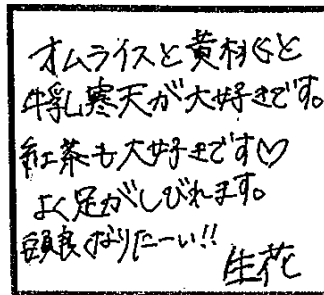 オムライスと黄粉と
牛乳寒天が大好きです。
紅茶も大好きです♡
よく足がしびれます。
頭良くなりたーい!!
生花